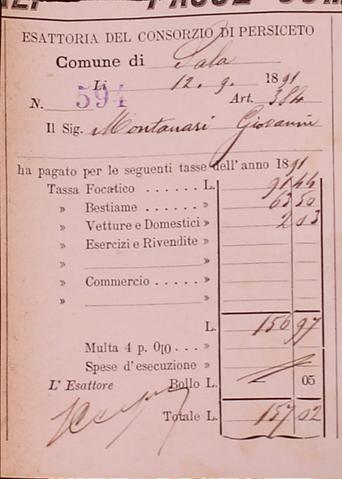 ESATTORIA DEL CONSORZIO DI PERSICETO
Comune di Sala
Li 12. 9. 1891
N. 594 Art. 384
Il Sig. Montanari Giovanni
ha pagato per le seguenti tasse dell'anno 1891
Tassa Focatico ...... L. 91 44
» Bestiame ...... » 63 50
» Vetture e Domestici » 2 03
» Esercizi e Rivendite »
» »
» Commercio ...... »
» »
L. 156 97
Multa 4 p. 0|0 ... »
Spese d'esecuzione »
L' Esattore Bollo L. 05
Totale L. 157 02